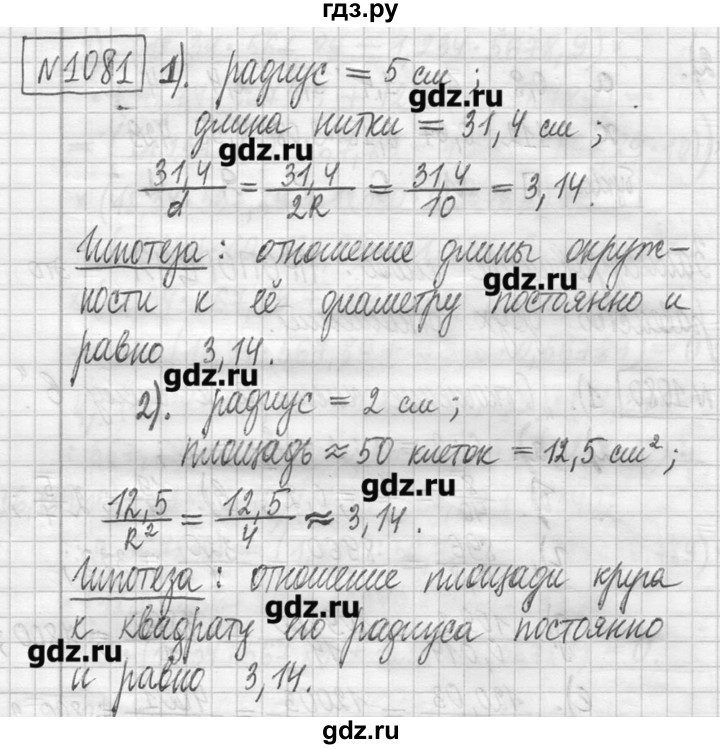 гдз.ру
№1081 1). радиус = 5 см ;
gdz.ru
длина нитки = 31,4 см ;
gdz.ru
31,4/d = 31,4/2R = 31,4/10 = 3,14.
Гипотеза : отношение длины окруж-
gdz.ru
ности к её диаметру постоянно и
равно 3,14.
gdz.ru
2). радиус = 2 см ;
площадь ≈ 50 клеток = 12,5 см² ;
gdz.ru
12,5/R² = 12,5/4 ≈ 3,14.
Гипотеза : отношение площади круга
gdz.ru
к квадрату его радиуса постоянно
gdz.ru
и равно 3,14.
gdz.ru